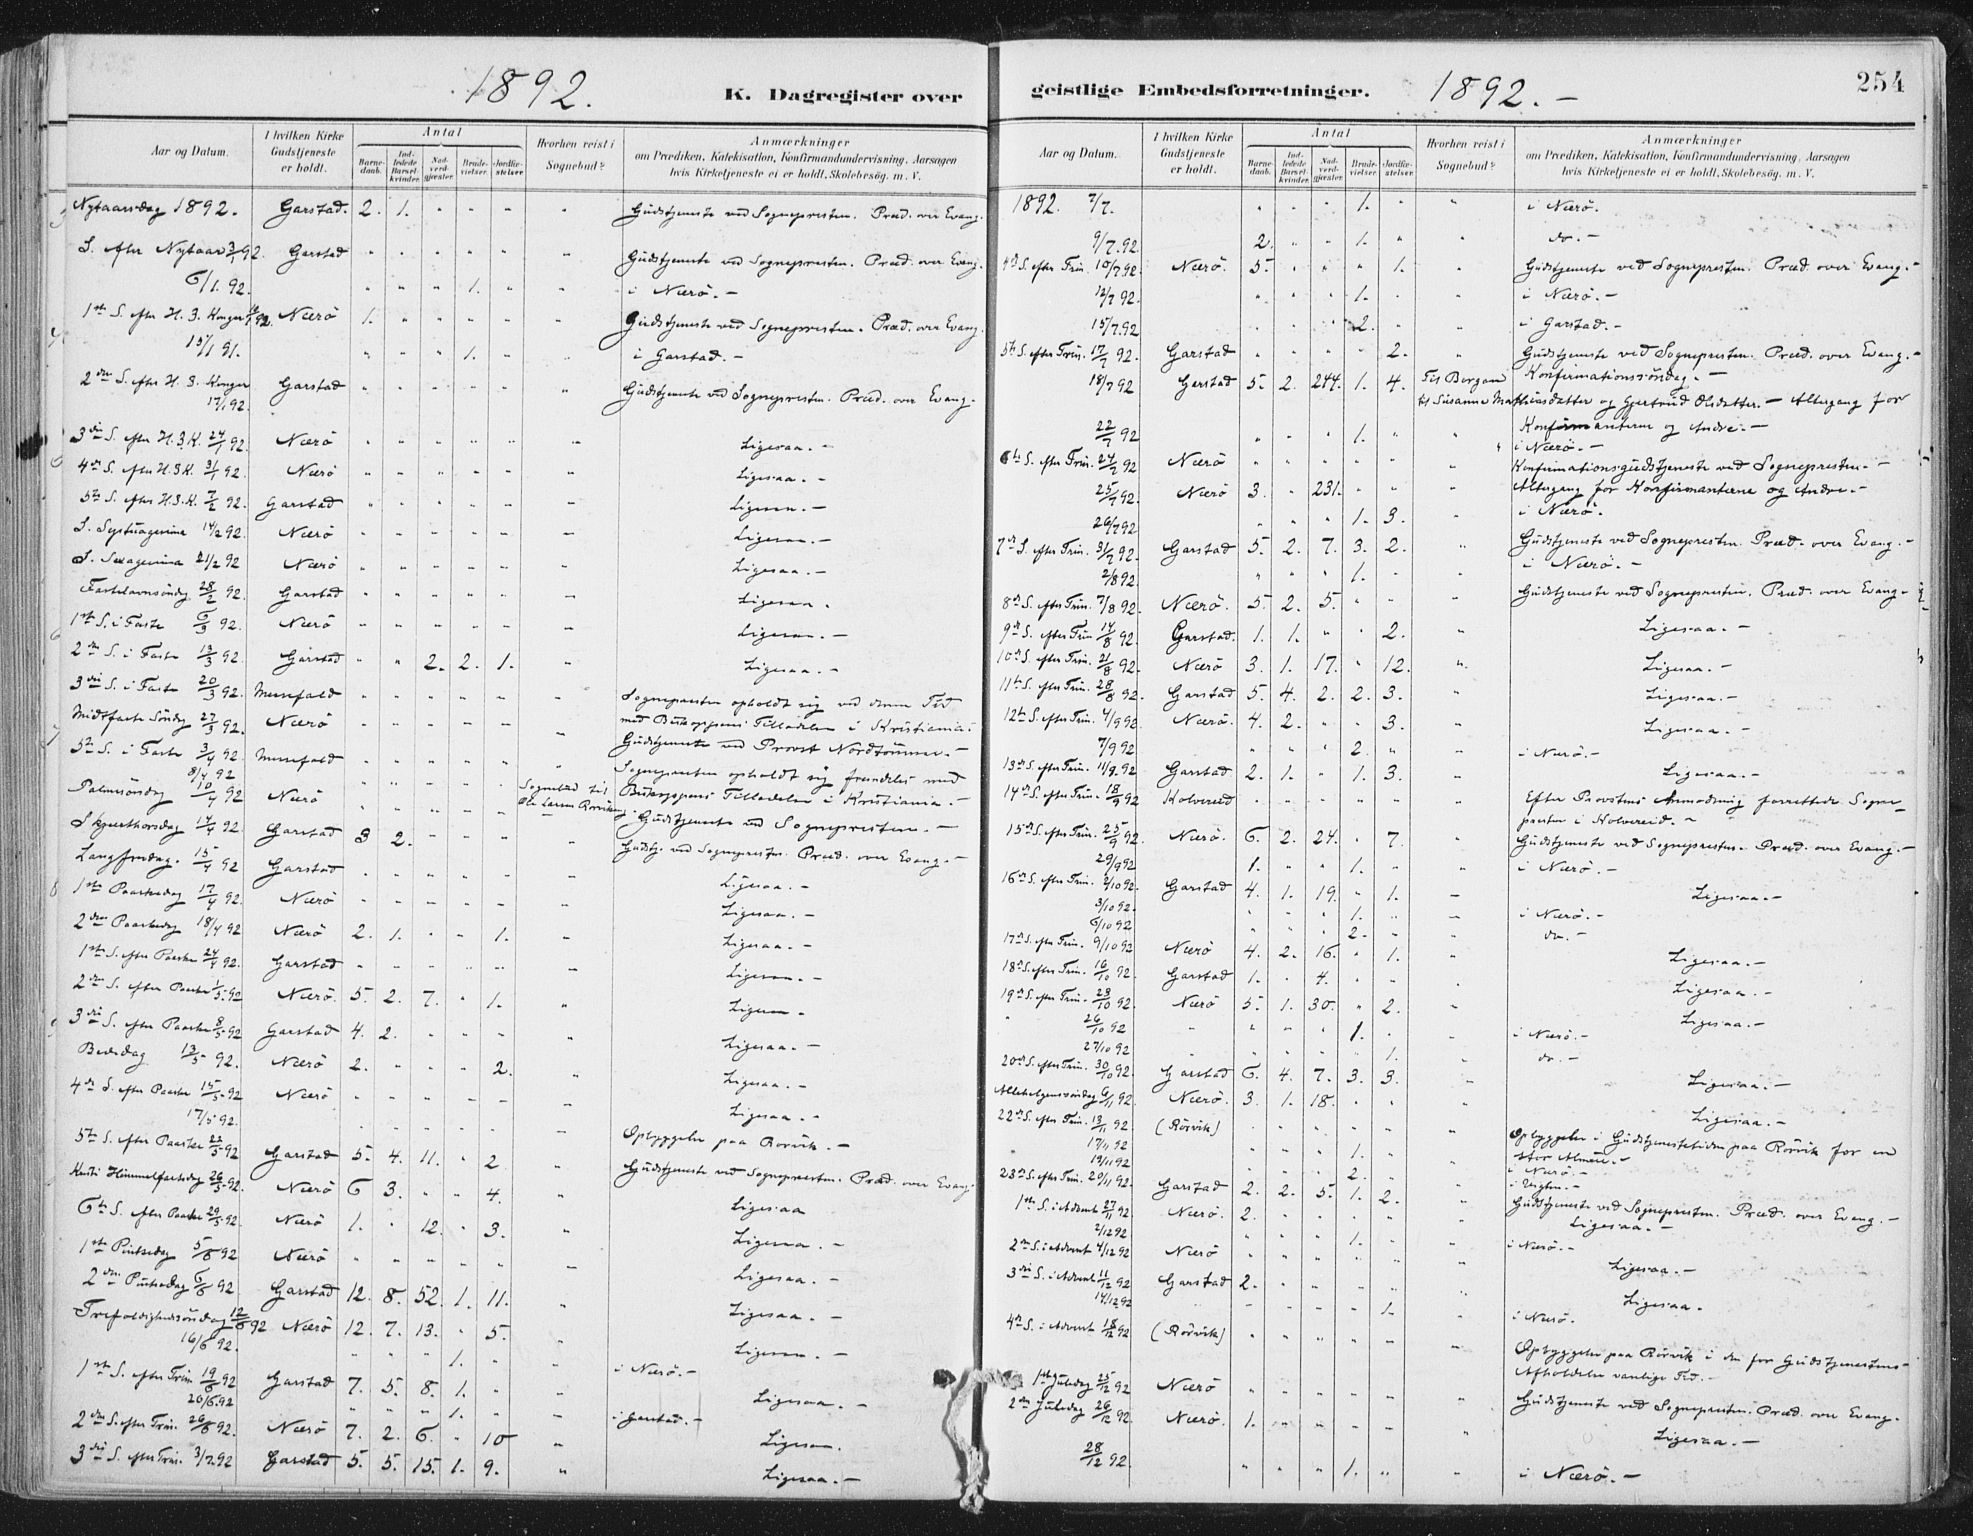 1892.
K. Dagregister over
Aar og Datum.
I hvilken Kirke Gudstjeneste er holdt.
Antal
Barnedaab.
Indledede Barselkvinder.
Nadverdgjester.
Brudevielser.
Jordfæstelser.
Hvorhen reist i Sognebud?
Anmærkninger
om Prædiken, Katekisation, Konfirmandundervisning, Aarsagen
hvis Kirketjeneste ei er holdt, Skolebesøg. m. V.
Nytaarsdag 1892. Garstad. 2. 1. " " " " Gudstjeneste ved Sognepresten. Præd. over Evang.
S. efter Nytaar 3/1 92. Garstad " " " " " " Gudstjeneste ved Sognepresten. Præd. over Evang.
6/1. 92. " " " 1. " " i Nærö. -
1ste S. efter H. 3. Konger 10/1 92. Nærö 1. " " " " " Gudstjeneste ved Sognepresten. Præd. over Evang.
15/1 91. " " " 1. " " i Garstad. -
2den S. efter H. 3. Konger Garstad " " " " " " Gudstjeneste ved Sognepresten. Præd. over Evang.
17/1 92.
3die S. efter H. 3. K. 24/1 92. Nærö " " " " " " Ligesaa. -
4de S. efter H. 3. K. 31/1 92. Nærö " " " " " " Ligesaa. -
5te S. efter H. 3. K. 7/2 92. Garstad " " " " " " Ligesaa. -
S. Septuagesima 14/2 92. Nærö " " " " " " Ligesaa. -
S. Sexagesima 21/2 92 Nærö " " " " " " Ligesaa. -
Fastelavnsöndag 28/2 92. Garstad " " " " " " Ligesaa.
1ste S. i Faste 6/3 92. Nærö " " " " " " Ligesaa. -
2den S. i Faste 13/3 92. Garstad " " 2. 2. 1. " Ligesaa. -
3die S. i Faste 20/3 92. Messefald " " " " " Sognepresten opholdt sig ved denne Tid
Midtfaste Söndag 27/3 92. Nærö " " " " " " med Biskoppens Tilladelse i Kristiania.
Gudstjeneste ved Provst Nordtömme. -
5te S. i Faste 3/4 92. Messefald " " " " " " Sognepresten opholdt sig fremdeles med
8/4 92 Sognebud til Biskoppens Tilladelse i Kristiania. -
Palmesöndag 10/4 92 Nærö " " " " " Gudstjeneste ved Sognepresten. -
Skjærthorsdag 14/4 92. Garstad 3 2. " " " " Gudstj. ved Sognepresten. Præd. over Evang. -
Langfredag. 15/4 92 Garstad " " " " " " Ligesaa. -
1ste Paaskedag 17/4 92. Nærö " " " " " " Ligesaa. -
2den Paaskedag 18/4 92 Nærö 2. 1. " " 1. " Ligesaa. -
1ste S. efter Paaske 24/4 92. Garstad " " " " " " Ligesaa. -
2den S. efter Paaske 1/5 92 Nærö. 5. 2. 7. " 1. " Ligesaa. -
3die S. efter Paaske 8/5 92 Garstad 4. 2. " " " " Ligesaa. -
Bededag 13/5 92. Nærö 2. " " " 2. " Ligesaa. -
4de S. efter Paaske 15/5 92 Nærö " " " " " " Ligesaa. -
17/5 92. " " " " " " Opbyggelse paa Rörvik. -
5te S. efter Paaske 22/5 92 Garstad 5. 4. 11. " 2 " Gudstjeneste ved Sognepresten. Præd. over Evang.
Kristi Himmelfartsdag 26/5 92. Nærö 6 3. " " 4. " Ligesaa
6te S. efter Paaske 29/5 92. Nærö 1. " 12. " 3. " Ligesaa. -
1ste Pintsedag 5/6 92 Nærö " " " " " " Ligesaa. -
2den Pintsedag 6/6 92 Garstad 12. 8. 52. 1. 11. " Ligesaa. -
Trefoldighedssöndag 12/6 92 Nærö 12. 7. 13. " 5. " Ligesaa. -
16/6 92. " " " 1. " " i Nærö. -
1ste S. efter Trin. 19/6 92 Garstad 7. 5. 8. 1. " " Ligesaa. -
20/6. 92 " " " 1. " " i Garstad. -
2den S. efter Trin. 26/6 92. Nærö 7. 2. 6. " 10 " Ligesaa.
3die S. efter Trin. 3/7. 92 Garstad 5. 5. 15. 1. 9. " Ligesaa. -
geistlige Embedsforretninger.
1892. -
254
Aar og Datum.
I hvilken Kirke Gudstjeneste er holdt.
Antal
Barnedaab.
Indledede Barselkvinder.
Nadverdgjester.
Brudevielser.
Jordfæstelser.
Hvorhen reist i Sognebud?
Anmærkninger
om Prædiken, Katekisation, Konfirmandundervisning, Aarsagen
hvis Kirketjeneste ei er holdt, Skolebesøg. m. V.
1892. 7/7. " " " 1. " " i Nærö.
9/7. 92. 2. " " 1. " " do. -
4de S. efter Trin. 10/7 92. Nærö. 5. " " " 1. " Gudstjeneste ved Sognepresten. Præd. over Evang. -
12/7 92. " " " 1. " i Nærö. -
15/7. 92 " " " 2. " i Garstad. -
5te S. efter Trin. 17/7 92. Garstad " " " " 2. " Gudstjeneste ved Sognepresten. Præd. over Evang. -
18/7 92 Garstad 5. 2. 244. 1. 4. Konfirmationssöndag. -
til Susanne Mathiasdatter og Gjertrud Olsdatter. - Altergang for
22/7 92 " " " 1. " " Konfirmanterne og Andre. -
i Nærö. -
6te S. efter Trin. 24/7 92 Nærö " " " " " " Konfirmationsgudstjeneste ved Sognepresten. -
25/7 92. Nærö 3. " 231. " " " Altergang for Konfirmanterne og Andre. -
26/7 92 " " " 1. 3. " i Nærö.
7de S. efter Trin. 31/7 92. Garstad 5. 2. 7. 3. 2. " Gudstjeneste ved Sognepresten. Præd. over Evang. -
2/8 92. " " " 1. " " i Nærö. -
8de S. efter Trin. 7/8 92. Nærö. 5. 2. 5. " " " Gudstjeneste ved Sognepresten. Præd. over Evang. -
9de S. efter Trin 14/8 92. Garstad. 1. 1. " " 2. " Ligesaa. -
10de S. efter Trin. 21/8 92. Nærö 3. 1. 17. " 12. " Ligesaa. -
11te S. efter Trin. 28/8 92. Garstad 5. 4. 2. 2. 3. " Ligesaa. -
12te S. efter Trin. 4/9 92 Nærö. 4. 2. " " 3. " Ligesaa. -
7/9 92 " " " 2. " " i Nærö. -
13de S. efter Trin. 11/9. 92 Garstad 2. 1. " 1. 3. " Ligesaa. -
14de S. efter Trin. 18/9 92 Kolvereid " " " " " " Efter Provstens Anmodning forrettede Sogne-
presten i Kolvereid. -
15de S. efter Trin. 25/9 92. Nærö. 6. 2. 24. " 7. " Gudstjeneste ved Sognepresten. Præd. over Evang. -
29/9 92 1. " " 1. " " i Nærö. -
16de S. efter Trin. 2/10 92. Garstad 4. 1. 19. " 1. " Ligesaa. -
3/10 92. " " " 1. " " i Nærö. -
6/10 92 " " " 2. " " do. -
17de S. efter Trin. 9/10 92 Nærö 4. 2. 16. " 1. " Ligesaa. -
18de S. efter Trin. 16/10 92. Garstad 1. " 4. " " " Ligesaa. -
19de S. efter Trin. 23/10 92. Nærö 5. 1. 30. " 2. " Ligesaa. -
26/10 92 " " " 1. " " i Nærö. -
27/10 92 " " " " 1. " do. -
20de S. efter Trin. 30/10 92. Garstad 6. 4. 7. 3. 3. " Ligesaa. -
Allehelgenssöndag 6/11 92. Nærö. 3. 1. 18. " " " Ligesaa. -
22de S. efter Trin. 13/11 92. (Rörvik) " " " " " " Opbyggelse i Gudstjenestetiden paa Rörvik for en
17/11 92 " " " 1. " stor Almue. -
i Nærö. -
19/11 92 " " " 2. " i Vigten. -
23de S. efter Trin. 20/11 92. Garstad 2. 2. 5. 1. 2. " Gudstjeneste ved Sognepresten. Præd. over Evang. -
1ste S. i Advent 27/11 92 Nærö. 2. " " " " " Ligesaa. -
2/12 92 " " " 1. " " i Nærö. -
2den S. i Advent 4/12 92 Nærö " " " " " " Ligesaa. -
3die S. i Advent 11/12 92 Garstad 2. " " " " " Ligesaa.
14/12 92 " " " " 1. " i Nærö.
4de S. i Advent 18/12 92 (Rörvik) " " " " " " Opbyggelse paa Rörvik i den for Gudstjenestens
Afholdelse vanlige Tid. -
1ste Juledag 25/12 92 Nærö " " " " " " Gudstjeneste ved Sognepresten. Præd. over Evang. -
2den Juledag 26/12 92. Nærö. 1. " " " " " Ligesaa. -
28/12 92. " " " 1. " " i Nærö. -